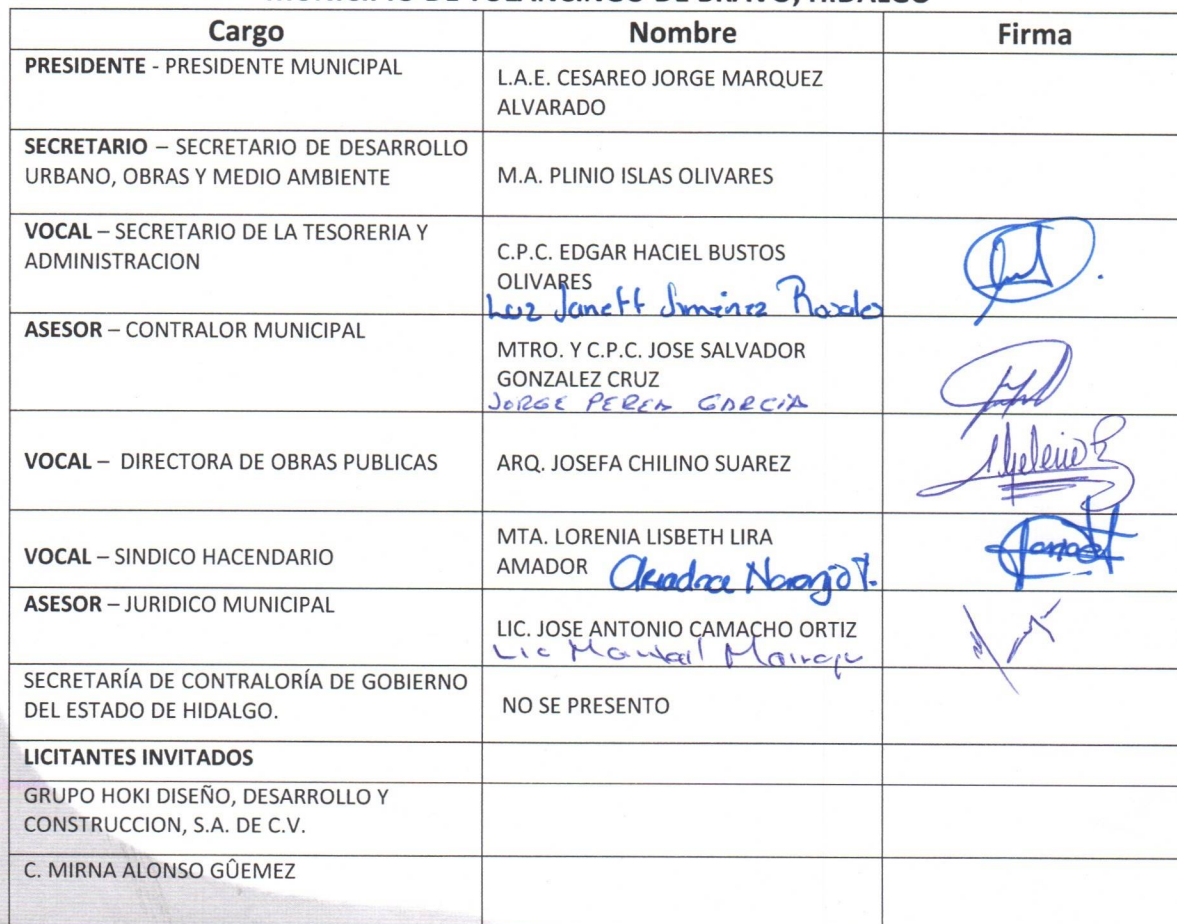 MUNICIPIO DE TULANCINGO DE BRAVO, HIDALGO
Cargo Nombre Firma
PRESIDENTE - PRESIDENTE MUNICIPAL
L.A.E. CESAREO JORGE MARQUEZ
ALVARADO
SECRETARIO – SECRETARIO DE DESARROLLO
URBANO, OBRAS Y MEDIO AMBIENTE
M.A. PLINIO ISLAS OLIVARES
VOCAL – SECRETARIO DE LA TESORERIA Y
ADMINISTRACION
C.P.C. EDGAR HACIEL BUSTOS
OLIVARES
Luz Janett Jiménez Rosales
ASESOR – CONTRALOR MUNICIPAL
MTRO. Y C.P.C. JOSE SALVADOR
GONZALEZ CRUZ
JORGE PEREA GARCIA
VOCAL – DIRECTORA DE OBRAS PUBLICAS
ARQ. JOSEFA CHILINO SUAREZ
VOCAL – SINDICO HACENDARIO
MTA. LORENIA LISBETH LIRA
AMADOR
Naranjo T.
ASESOR – JURIDICO MUNICIPAL
LIC. JOSE ANTONIO CAMACHO ORTIZ
Lic
SECRETARÍA DE CONTRALORÍA DE GOBIERNO
DEL ESTADO DE HIDALGO.
NO SE PRESENTO
LICITANTES INVITADOS
GRUPO HOKI DISEÑO, DESARROLLO Y
CONSTRUCCION, S.A. DE C.V.
C. MIRNA ALONSO GÛEMEZ